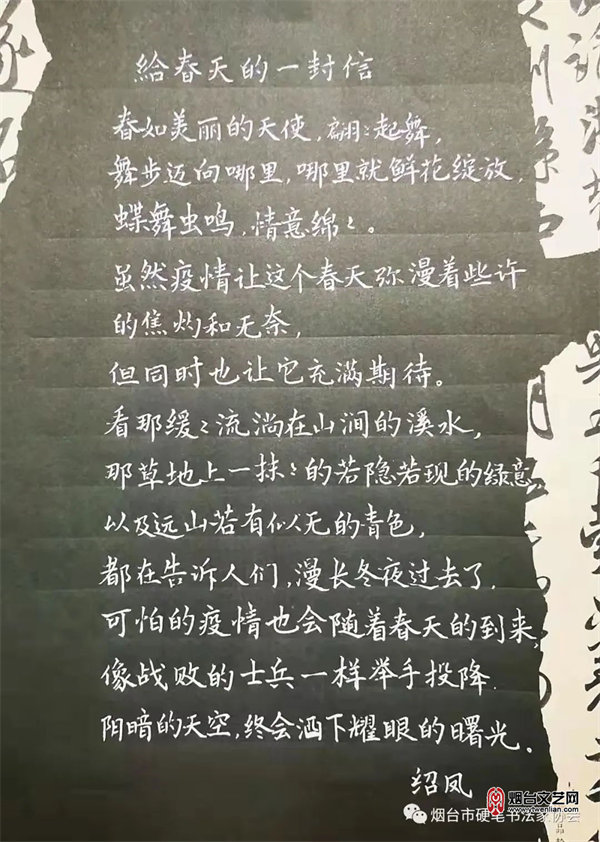 給春天的一封信
春如美丽的天使,翩々起舞,
舞步迈向哪里,哪里就鲜花绽放,
蝶舞虫鸣,情意绵々。
虽然疫情让这个春天弥漫着些许
的焦灼和无奈,
但同时也让它充满期待。
看那缓々流淌在山涧的溪水,
那草地上一抹々的若隐若现的绿意,
以及远山若有似无的青色,
都在告诉人们,漫长冬夜过去了,
可怕的疫情也会随着春天的到来,
像战败的士兵一样举手投降.
阴暗的天空,终会洒下耀眼的曙光。
绍凤
烟台市硬笔书法家协会
烟台文艺网
www.ytwenlian.com